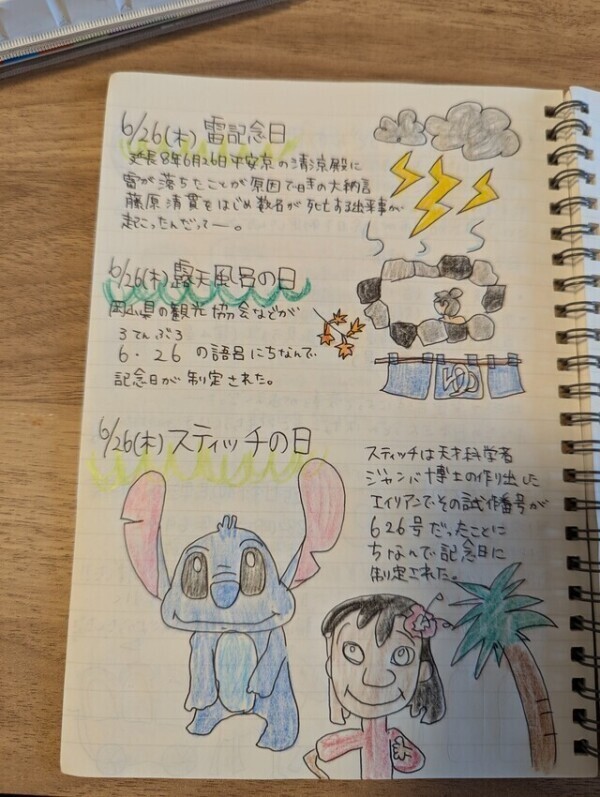 6/26(木) 雷記念日
延長8年6月26日平安京の清涼殿に
雷が落ちたことが原因で時の大納言
藤原清貫をはじめ数名が死亡する出来事が
起こったんだって〜。
6/26(木)露天風呂の日
岡山県の観光協会などが
ろてんぶろ
6・26の語呂にちなんで
記念日が制定された。
ゆ
6/26(木)スティッチの日
スティッチは天才科学者
ジャンバ博士の作り出した
エイリアンでその試作番号が
626号だったことに
ちなんで記念日に
制定された。